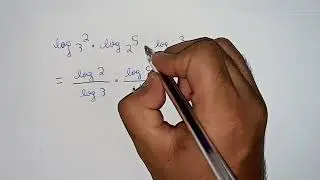 log₃² · log₂⁵ · log ³
= log 2 / log 3 · log 5